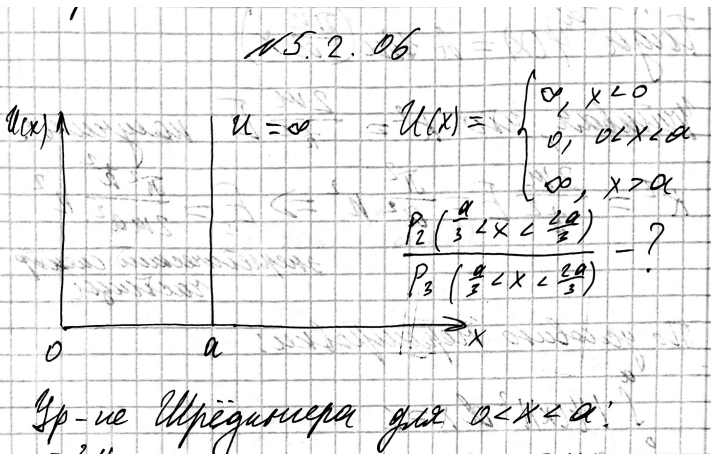 №5.2.06
U(x)
U = ∞
U(x) = { ∞, x < 0
0, 0 < x < a
∞, x > a
P₂ (a/3 < x < 2a/3)
P₃ (a/3 < x < 2a/3) - ?
0 a x
Ур-ие Шрёдингера для 0 < x < a: